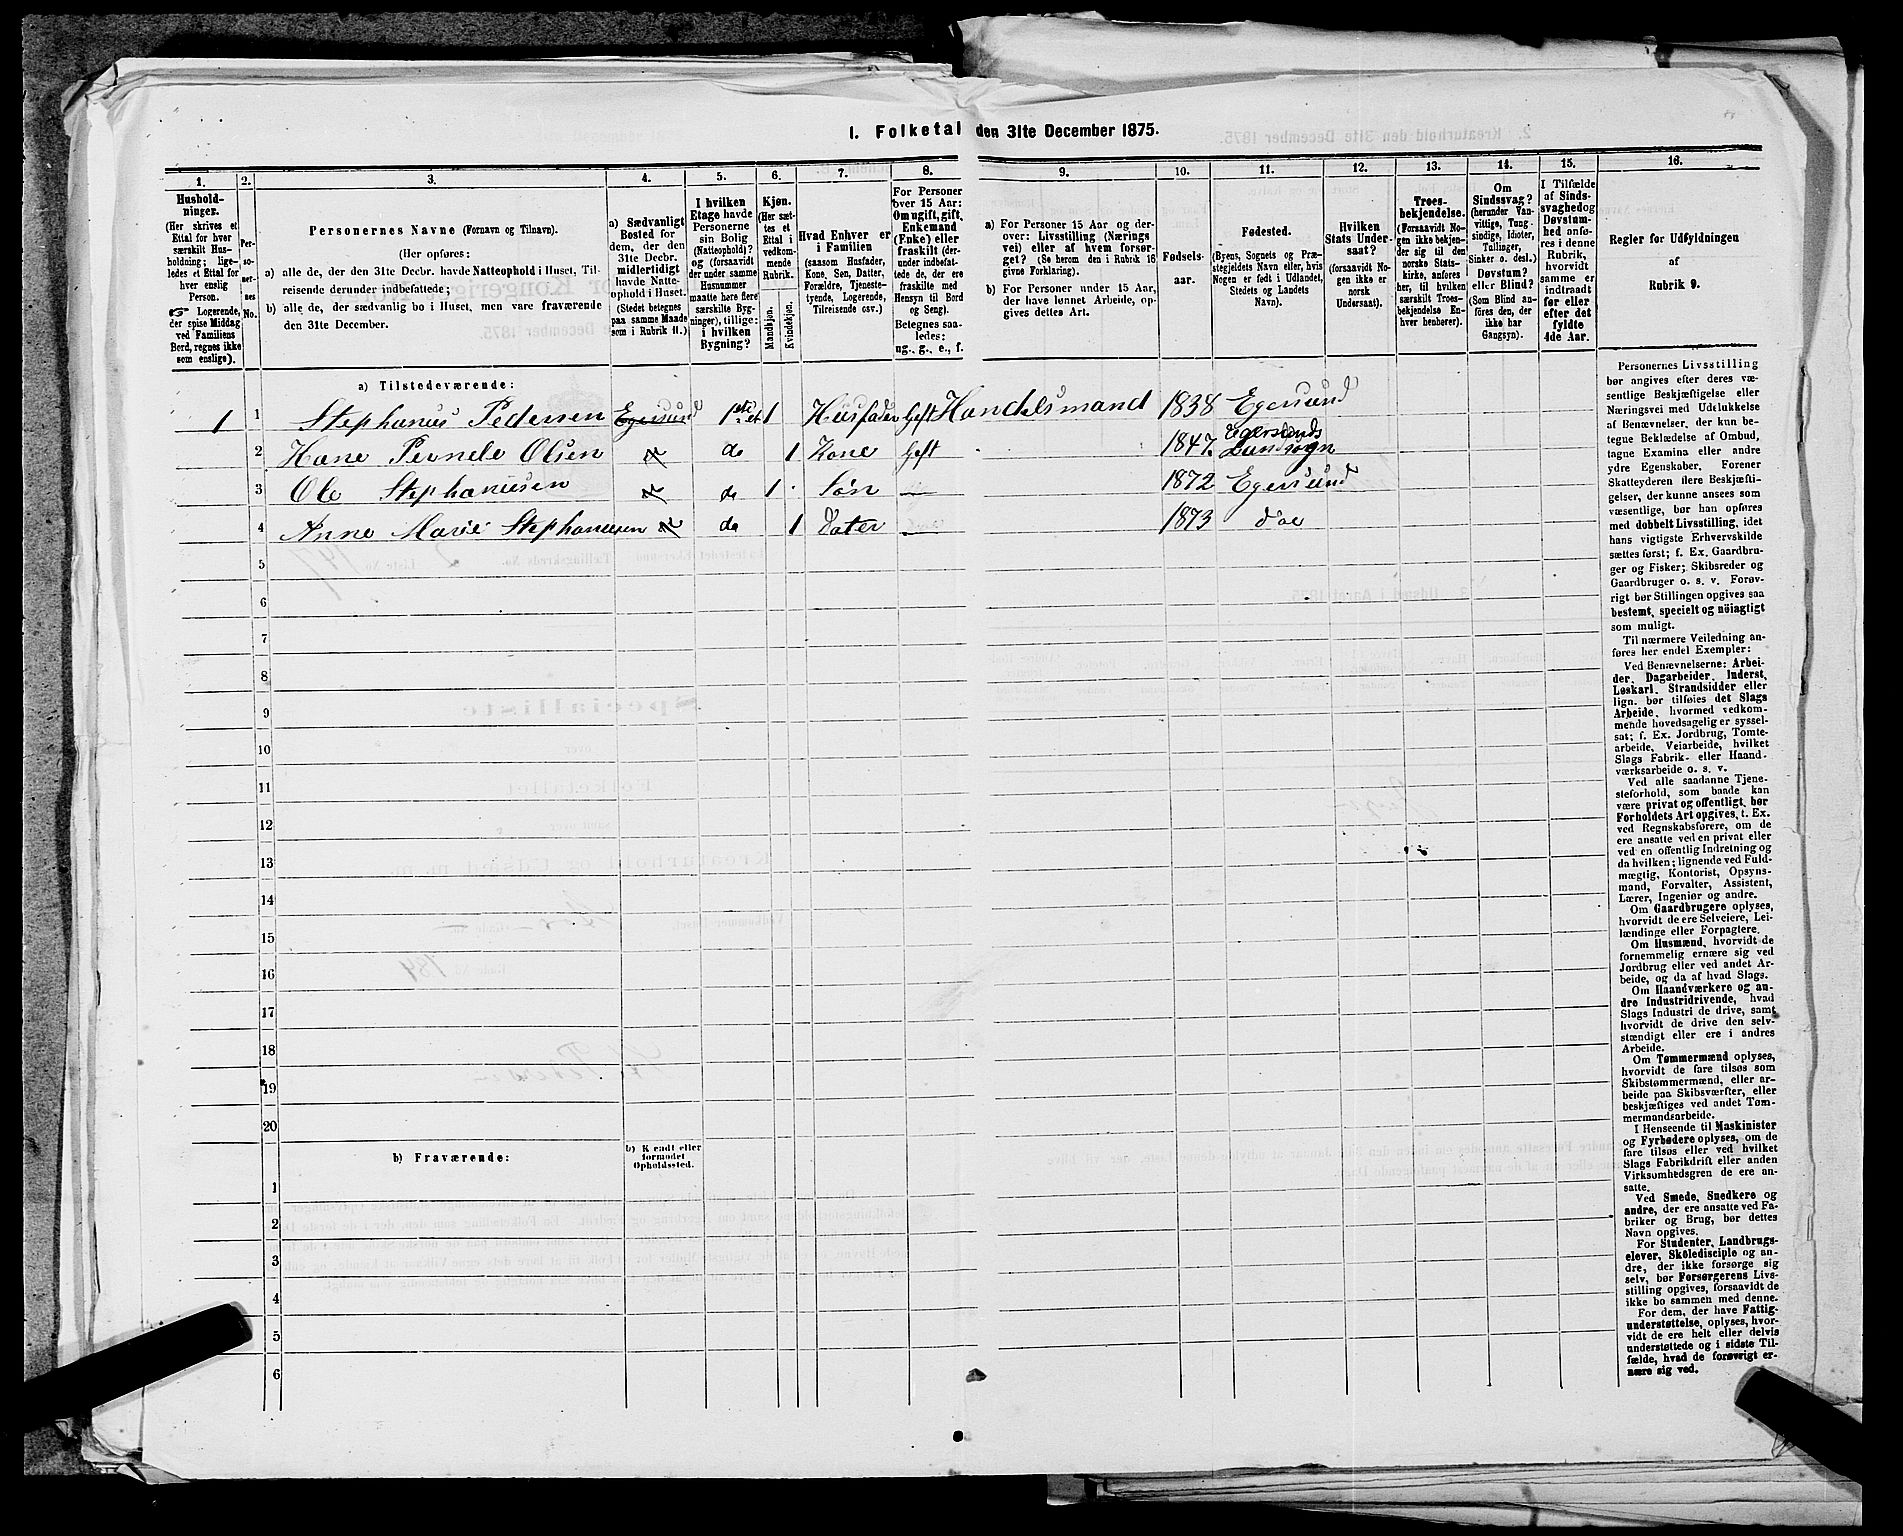 1. Folketal den 31te December 1875.
1. 2. 3. 4. 5. 6. 7. 8. 9. 10. 11. 12. 13. 14. 15. 16.
Hushold-
ninger.
(Her skrives et
Ettal for hver
særskilt Hus-
holdning; lige-
ledes et Ettal for
hver enslig
Person.
☞ Logerende,
der spise Middag
ved Familiens
Bord, regnes ikke
som enslige).
Per-
so-
ner-
nes
No.
Personernes Navne (Fornavn og Tilnavn).
(Her opføres:
a) alle de, der den 31te Decbr. havde Natteophold i Huset, Til-
reisende derunder indbefattede;
b) alle de, der sædvanlig bo i Huset, men vare fraværende
den 31te December.
a) Sædvanligt
Bosted for
dem, der den
31te Decbr.
midlertidigt
havde Natte-
ophold i Huset.
(Stedet betegnes
paa samme Maade
som i Rubrik 11.)
I hvilken
Etage havde
Personerne
sin Bolig
(Natteophold)?
og (forsaavidt
der under samme
Husnummer
maatte høre flere
særskilte Byg-
ninger), tillige:
i hvilken
Bygning?
Kjøn.
(Her sæt-
tes et
Ettal i
vedkom-
mende
Rubrik.
Mandkjøn.
Kvindekjøn.
Hvad Enhver er
i Familien
(saasom Husfader,
Kone, Søn, Datter,
Forældre, Tjeneste-
tyende, Logerende,
Tilreisende osv.)
For Personer
over 15 Aar:
Om ugift, gift,
Enkemand
(Enke) eller
fraskilt (der-
under indbefat-
tede de, der ere
fraskilte med
Hensyn til Bord
og Seng).
Betegnes saa-
ledes:
ug., g., e., f.
a) For Personer 15 Aar og der-
over: Livsstilling (Nærings
vei) eller af hvem forsør-
get? (Se herom den i Rubrik 16
givne Forklaring).
b) For Personer under 15 Aar,
der have lønnet Arbeide, op-
gives dettes Art.
Fødsels-
aar.
Fødested.
(Byens, Sognets og Præ-
stegjeldets Navn eller, hvis
Nogen er født i Udlandet,
Stedets og Landets
Navn).
Hvilken
Stats Under-
saat?
(forsaavidt No-
gen ikke er
norsk
Undersaat).
Troes-
bekjendelse.
(Forsaavidt No-
gen ikke bekjen-
der sig til den
norske Stats-
kirke, anføres
særskilt Troes-
bekjendelse En-
hver henhører).
Om
Sindssvag?
(herunder Van-
vittige, Tung-
sindige, Idioter,
Tullinger,
Sinker o. desl.)
Døvstum?
eller Blind?
(Som Blind an-
føres den, der
ikke har
Gangsyn).
I Tilfælde
af Sinds-
svaghed og
Døvstum-
hed anfø-
res i denne
Rubrik,
hvorvidt
samme er
indtraadt
før eller
efter det
fyldte
4de Aar.
Regler for Udfyldningen
af
Rubrik 9.
a) Tilstedeværende:
1 1 Stephanus Pedersen Egersund 1ste et 1 Husfader Gift Handelsmand 1838 Egersund
2 Hane Pernele Olsen do 1 Kone Gift 1847 Egersunds Landsogn
3 Ole Stephanusen do 1 Søn 1872 Egersund
4 Anne Marie Stephanusen do 1 Dater 1873 do
5
6
7
8
9
10
11
12
13
14
15
16
17
18
19
20
b) Fraværende:
b) Kendt eller
formodet
Opholdssted.
1
2
3
4
5
6
Personernes Livsstilling
bør angives efter deres væ-
sentlige Beskjæftigelse eller
Næringsvei med Udelukkelse
af Benævnelser, der kun be-
tegne Beklædelse af Ombud,
tagne Examina eller andre
ydre Egenskaber. Forener
Skatteyderen flere Beskjæfti-
gelser, der kunne ansees som
væsentlige, bør han opføres
med dobbelt Livsstilling, idet
hans vigtigste Erhvervskilde
sættes først; f. Ex. Gaardbru-
ger og Fisker; Skibsreder og
Gaardbruger o. s. v. Forøv-
rigt bør Stillingen opgives saa
bestemt, specielt og nöiagtigt
som muligt.
Til nærmere Veiledning an-
føres her endel Exempler:
Ved Benævnelserne: Arbei-
der, Dagarbeider, Inderst,
Løskarl, Strandsidder eller
lign. bør tilføies det Slags
Arbeide, hvormed vedkom-
mende hovedsagelig er syssel-
sat; f. Ex. Jordbrug, Tomte-
arbeide, Veiarbeide, hvilket
Slags Fabrik- eller Haand-
værksarbeide o. s. v.
Ved alle saadanne Tjene-
steforhold, som baade kan
være privat og offentligt, bør
Forholdets Art opgives, t. Ex.
ved Regnskabsførere, om de
ere ansatte ved en privat eller
ved en offentlig Indretning og
da hvilken; lignende ved Fuld-
mægtig, Kontorist, Opsyns-
mand, Forvalter, Assistent,
Lærer, Ingeniør og andre.
Om Gaardbrugere oplyses,
hvorvidt de ere Selveiere, Lei-
lændinge eller Forpagtere.
Om Husmænd, hvorvidt de
fornemmelig ernære sig ved
Jordbrug eller ved andet Ar-
beide, og da af hvad Slags.
Om Haandværkere og an-
dre Industridrivende, hvad
Slags Industri de drive, samt
hvorvidt de drive den selv-
stændigt eller ere i andres
Arbeide.
Om Tømmermænd oplyses,
hvorvidt de fare tilsøs som
Skibstømmermænd, eller ar-
beide paa Skibsværfter, eller
beskjæftiges ved andet Tøm-
mermandsarbeide.
I Henseende til Maskinister
og Fyrbødere oplyses, om de
fare tilsøs eller ved hvilket
Slags Fabrikdrift eller anden
Virksomhedsgren de ere an-
satte.
Ved Smede, Snedkere og
andre, der ere ansatte ved Fa-
briker og Brug, bør dettes
Navn opgives.
For Studenter, Landbrugs-
elever, Skoledisciple og an-
dre, der ikke forsørge sig
selv, bør Forsørgerens Livs-
stilling opgives, forsaavidt de
ikke bo sammen med denne.
For dem, der have Fattig-
understøttelse, oplyses, hvor-
vidt de ere helt eller delvis
understøttede og i sidste Til-
fælde, hvad de forøvrigt er-
nære sig ved.